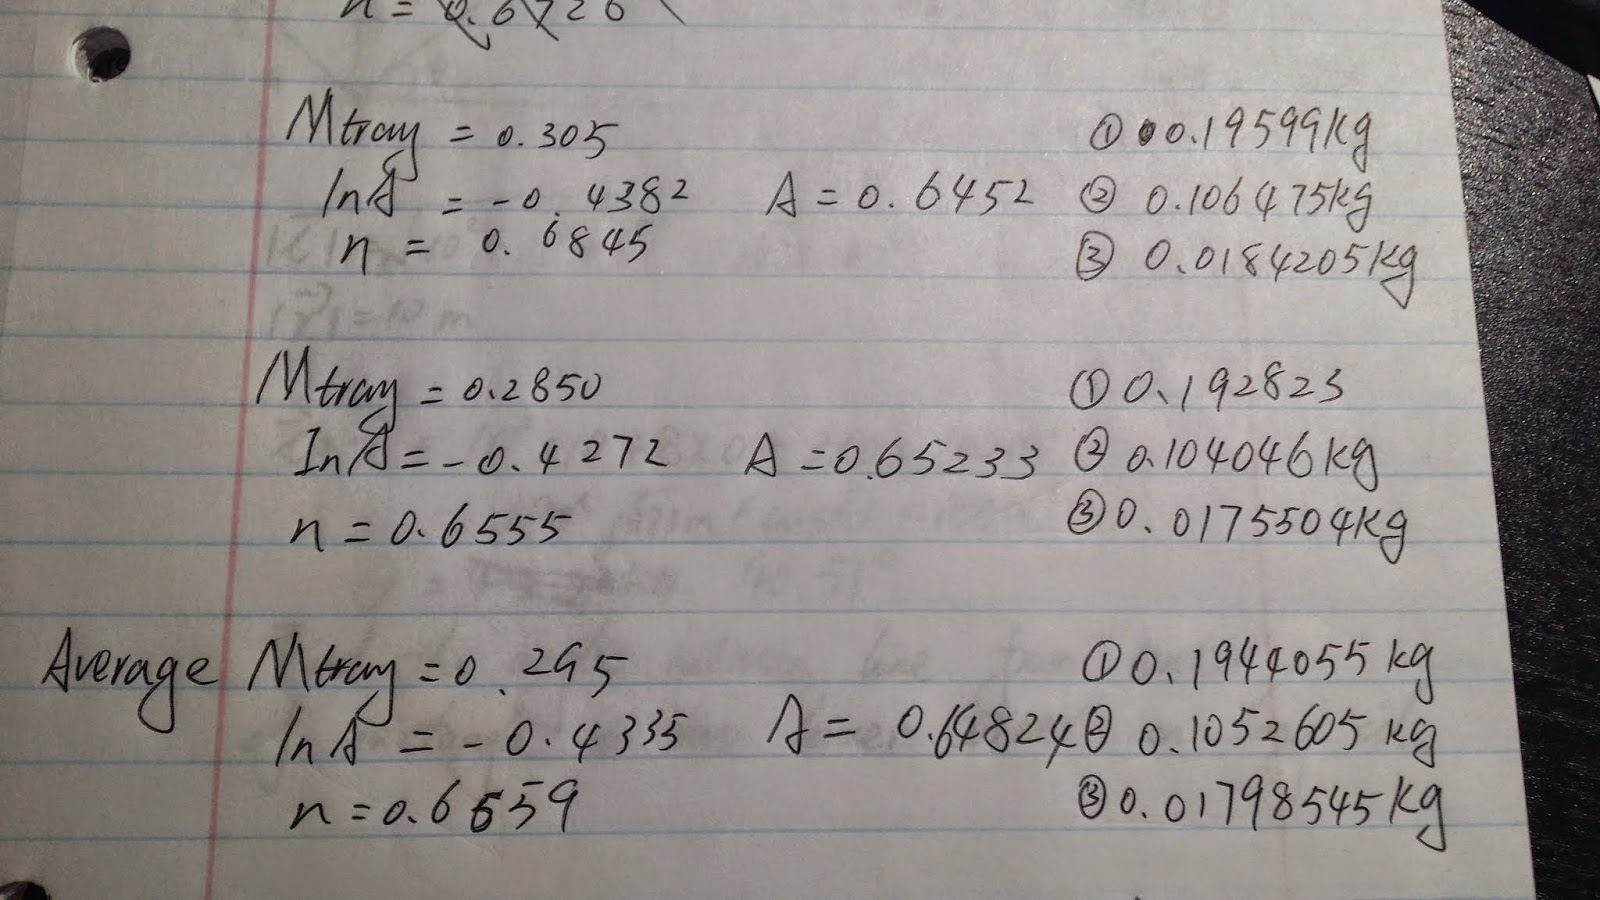 n = 0.6726
Mtray = 0.305 ① 0.19599kg
lnA = -0.4382 A = 0.6452 ② 0.106475kg
n = 0.6845 ③ 0.0184205kg
Mtray = 0.2850 ① 0.192823
InA = -0.4272 A = 0.65233 ② 0.104046kg
n = 0.6555 ③ 0.0175504kg
Average Mtray = 0.295 ① 0.1944055 kg
lnA = -0.4335 A = 0.64824 ② 0.1052605 kg
n = 0.6659 ③ 0.01798545 kg